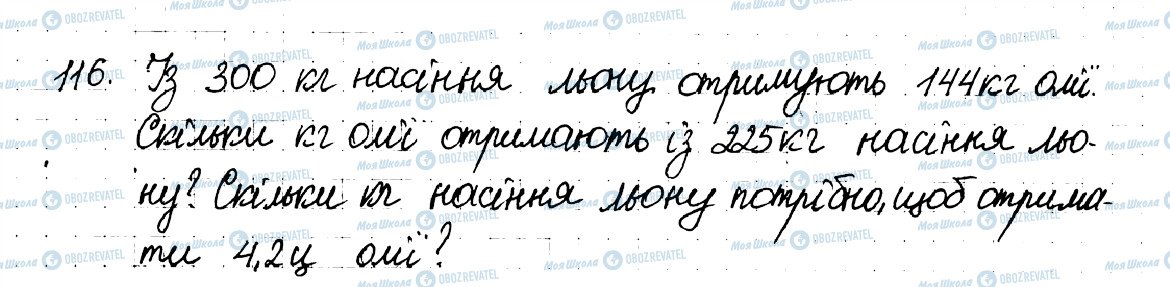 116. Із 300 кг насіння льону отримують 144кг олії.
Скільки кг олії отримають із 225кг насіння льо-
ну? Скільки кг насіння льону потрібно, щоб отрима-
ти 4,2ц олії?